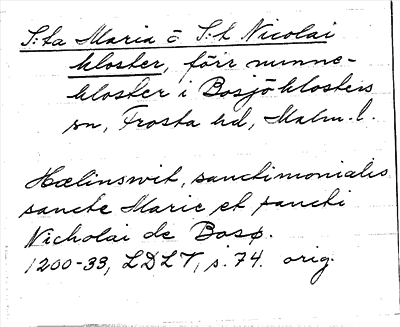 S:ta Maria o S:t Nicolai
kloster, förr nunne-
kloster i Bosjöklosters
sn, Frosta hd, Malm. l.
Hælinswit, sanctimonialis
sancte Marie et sancti
Nicholai de Bosø.
1200-33, LDLV, s. 74. orig.